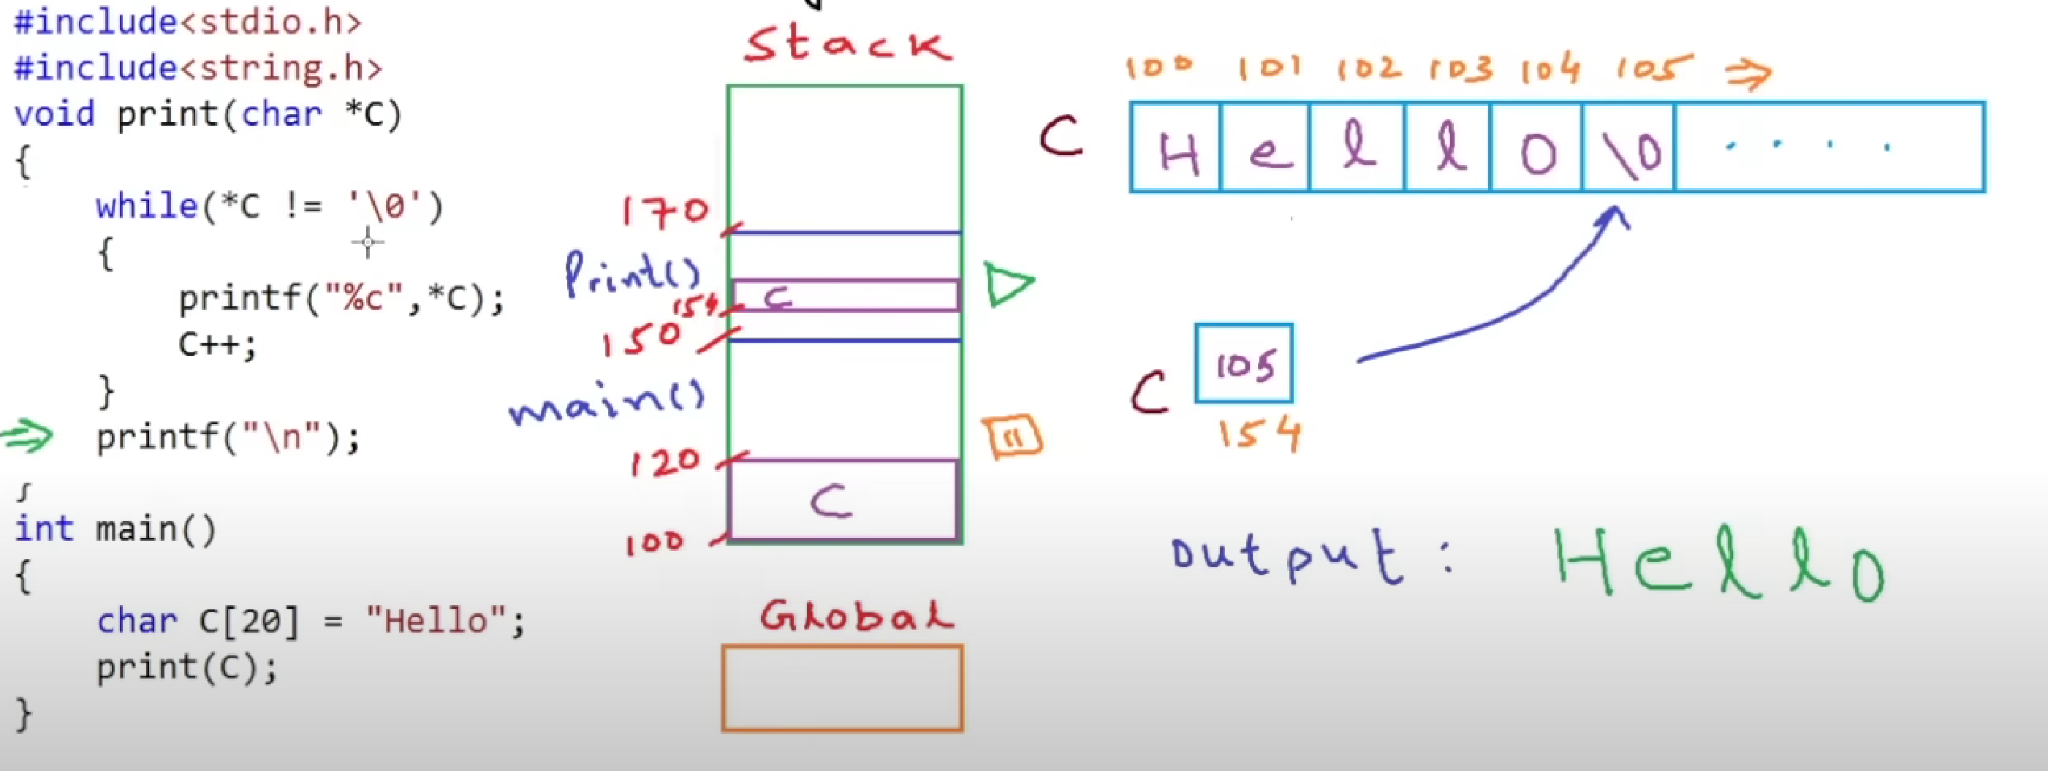 #include<stdio.h>
#include<string.h>
void print(char *C)
{
while(*C != '\0')
{
printf("%c",*C);
C++;
}
printf("\n");
}
int main()
{
char C[20] = "Hello";
print(C);
}
Stack
170
Print()
154
C
150
main()
120
C
100
Global
100 101 102 103 104 105
C H e l l o \0 . . . .
C 105
154
output : Hello